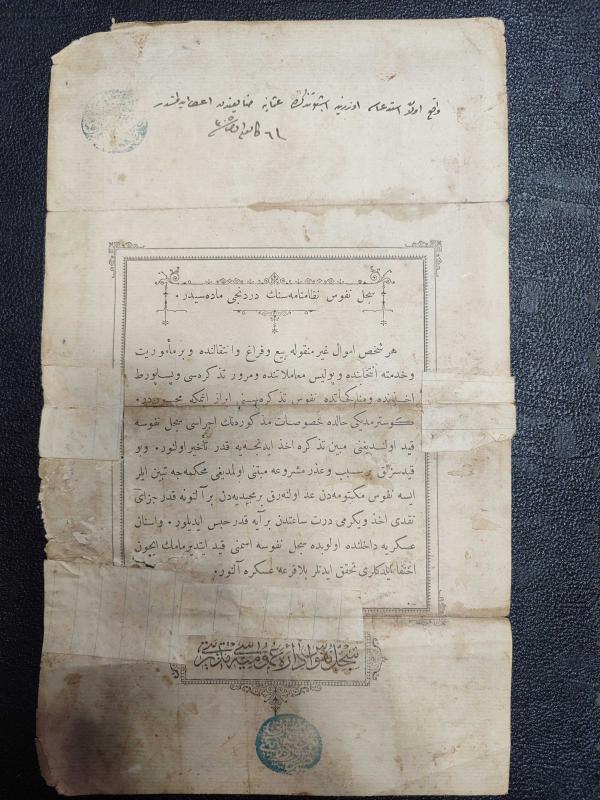 واقع اولان استدعا اوزرينه اشبو تذكره عثمانيه
سجل نفوس نظامنامه سنك دردنجی ماده سيدر ٠
هر شخص اموال غير منقوله بيع وفراغ وانتقالنده وبرمأموريت
وخدمته انتخابنده وپوليس معاملاتنده ومرور تذكره سی وپساپورط
اخذنده ومناكحاتده نفوس تذكره سنی ابراز ايتمكه مجبوردر ٠
كوسترمديكی حالده خصوصات مذكوره نك اجراسی سجل نفوسه
قيد اولنديغنی مبين تذكره اخذ ايدنجه يه قدر تأخير اولنور ٠ وبو
قيدسزلق بر سبب وعذر مشروعه مبتنی اولمديغی محكمه جه تبين ايلر
ايسه نفوس مكتومه دن عد اولنه رق بر مجيديه دن بر آلتونه قدر جزای
نقدی اخذ ويكرمی درت ساعتدن بر آيه قدر حبس ايديلور ٠ واسنان
عسكريه داخلنده اولوبده سجل نفوسه اسمنی قيد ايتديرمامك ايچون
اختفا ايلدكلری تحقق ايدنلر بلا قرعه عسكره آلنور ٠
سجل نفوس اداره عموميه سی